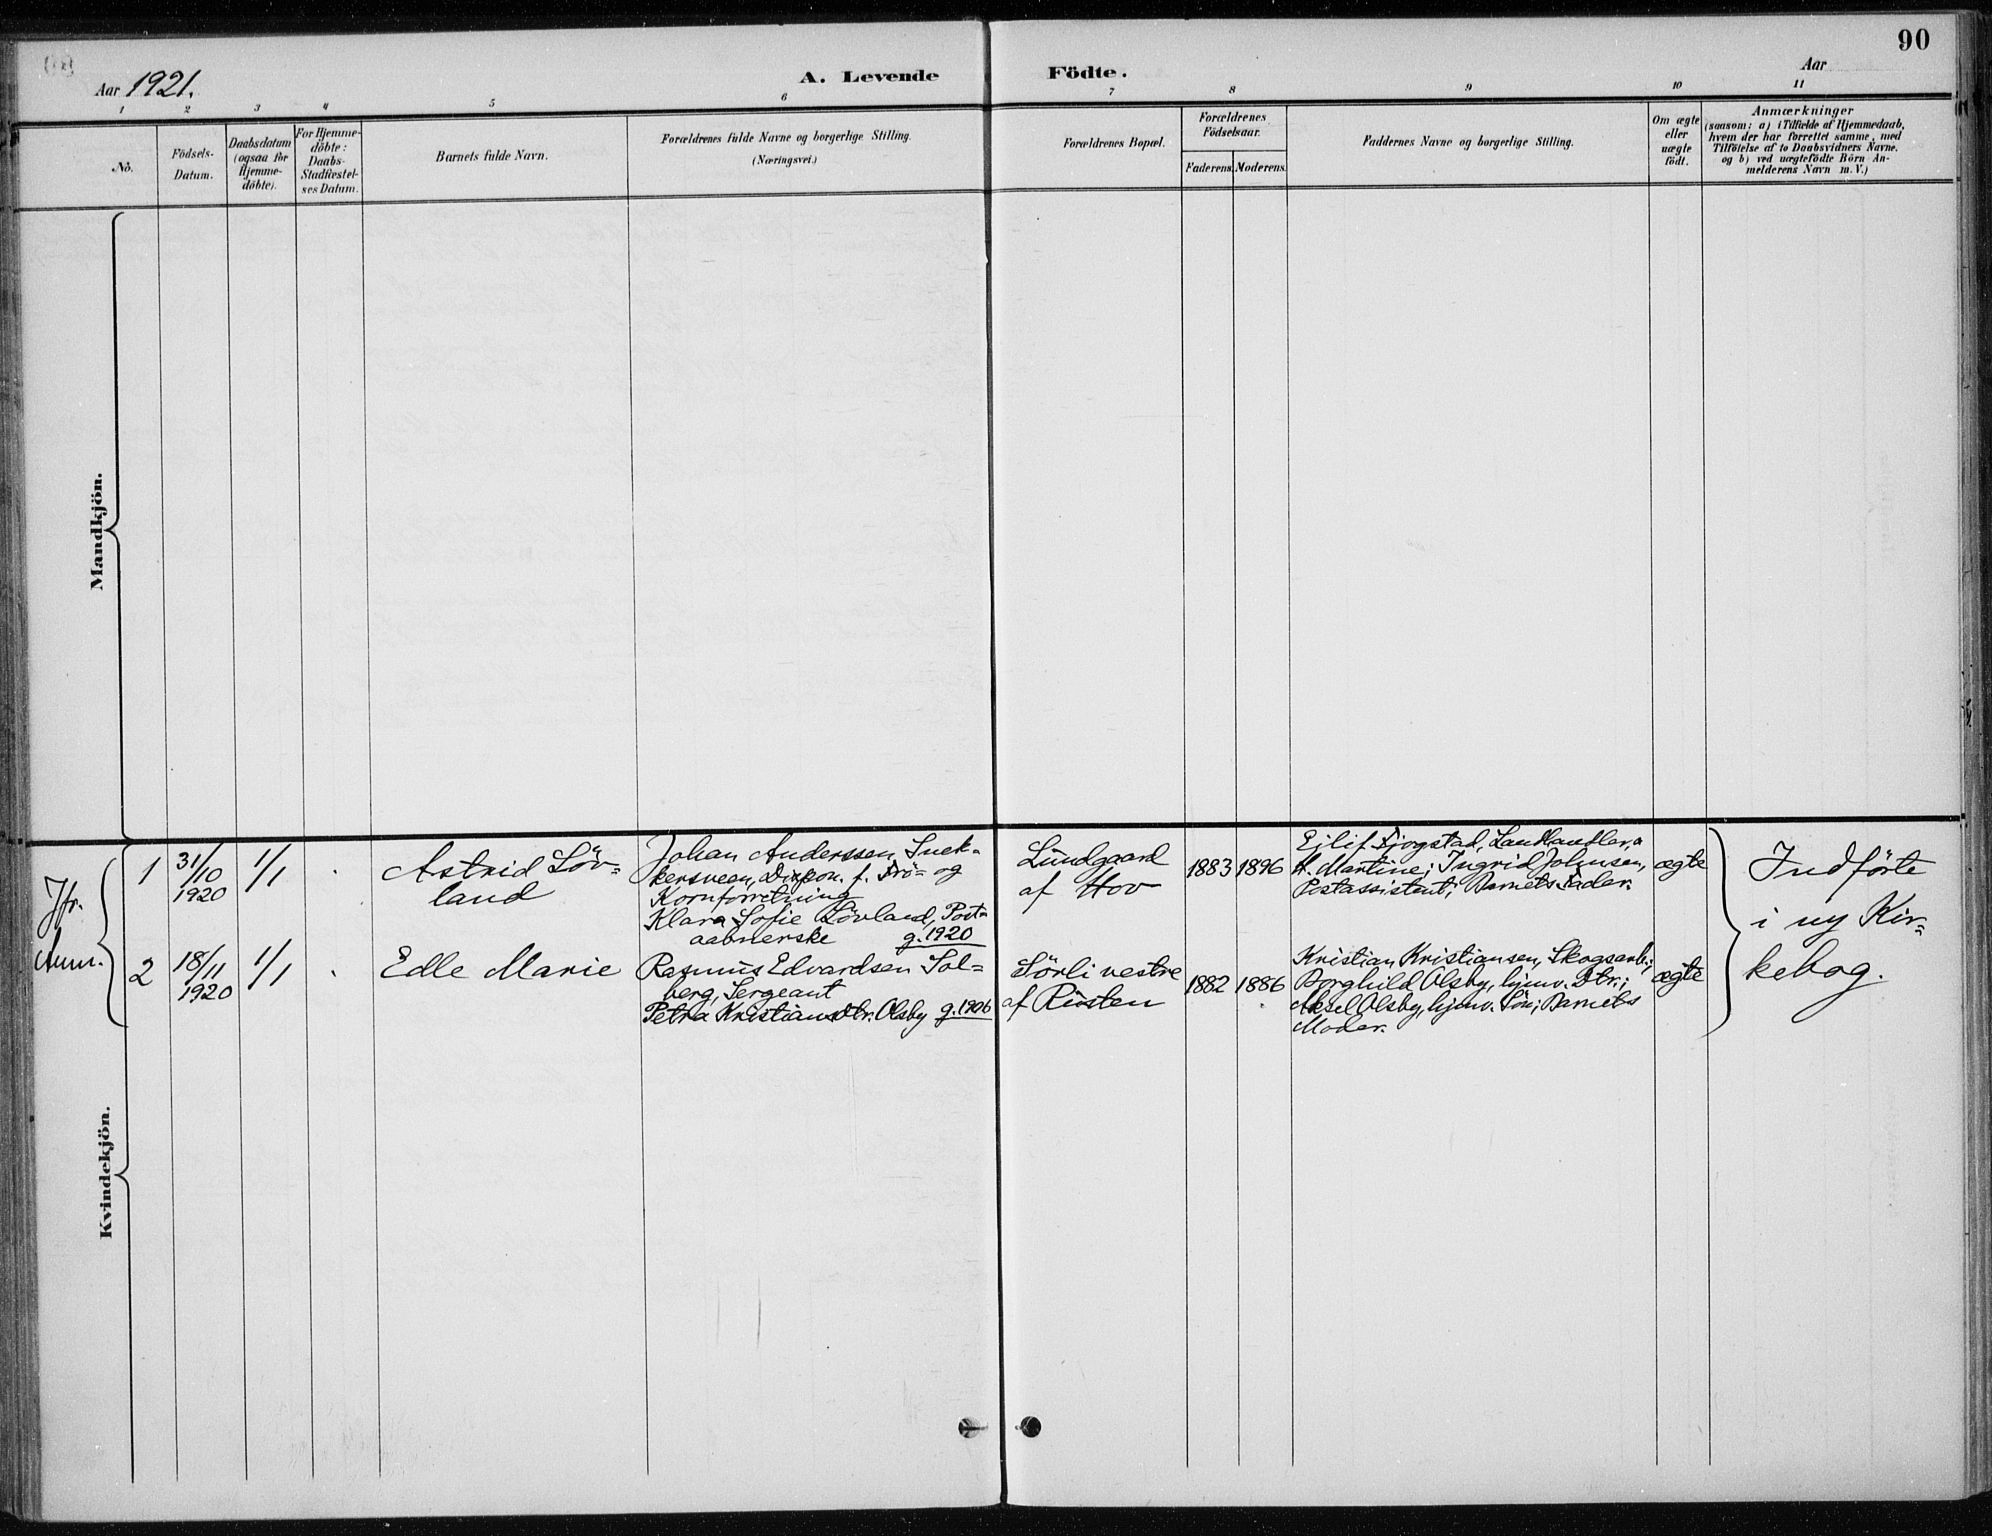 90
Aar 1921.
A. Levende Födte.
Aar
1 2 3 4 5 6 7 8 9 10 11
No.
Födsels-
Datum.
Daabsdatum
(ogsaa for
Hjemme-
döbte).
For Hjemme-
döbte:
Daabs-
Stadfæstel-
ses Datum.
Barnets fulde Navn.
Forældrenes fulde Navne og borgerlige Stilling.
(Næringsvei.)
Forældrenes Bopæl.
Forældrenes
Födselsaar.
Faderens. Moderens.
Faddernes Navne og borgerlige Stilling.
Om ægte
eller
uægte
födt.
Anmærkninger
(saasom: a) i Tilfælde af Hjemmedaab,
hvem der har forrettet samme, med
Tilföielse af to Daabsvidners Navne.
og b) ved uægtefödte Börn An-
melderens Navn m. V.)
Mandkjön.
Kvindekjön.
Jfr.
Anm.
1
31/10
1920
1/1
Astrid Löv-
land
Johan Anderssen
kersveen, Dispon. f. Frö- og
Kornforretning
Klara Sofie Lövland, Post-
aabnerske g. 1920
Lundgaard
af Hov
1883 1896
Ejlif Landhandler,
H. Martine; Ingrid Johnsen,
Postassistent; Barnets Fader.
ægte
Indförte
i ny Kir-
kebog.
2
18/11
1920
1/1
Edle Marie
Rasmus Edvardsen Sol-
berg, Sergeant
Petra Kristiansdtr. Olsby g. 1906
Sörli vestre
af Rusten
1882 1886
Kristian Kristiansen, Skogsarb.;
Borghild Olsby, hjmv. Dtr.;
Aksel Olsby, hjmv. Sön; Barnets
Moder.
ægte